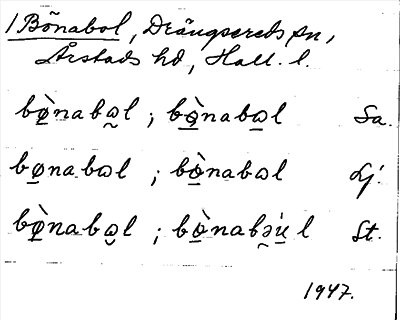 / Bönabol, Drängsereds sn,
Årstads hd, Hall. l.
bø̱̀nabω̰l ; bø̱̀nabω̱l Sa.
bø̱nabωl ; bø̱̀nabωl Lj.
bø̱̀nabω̮l ; bø̱̀nabə̰ú̱l St.
1947.